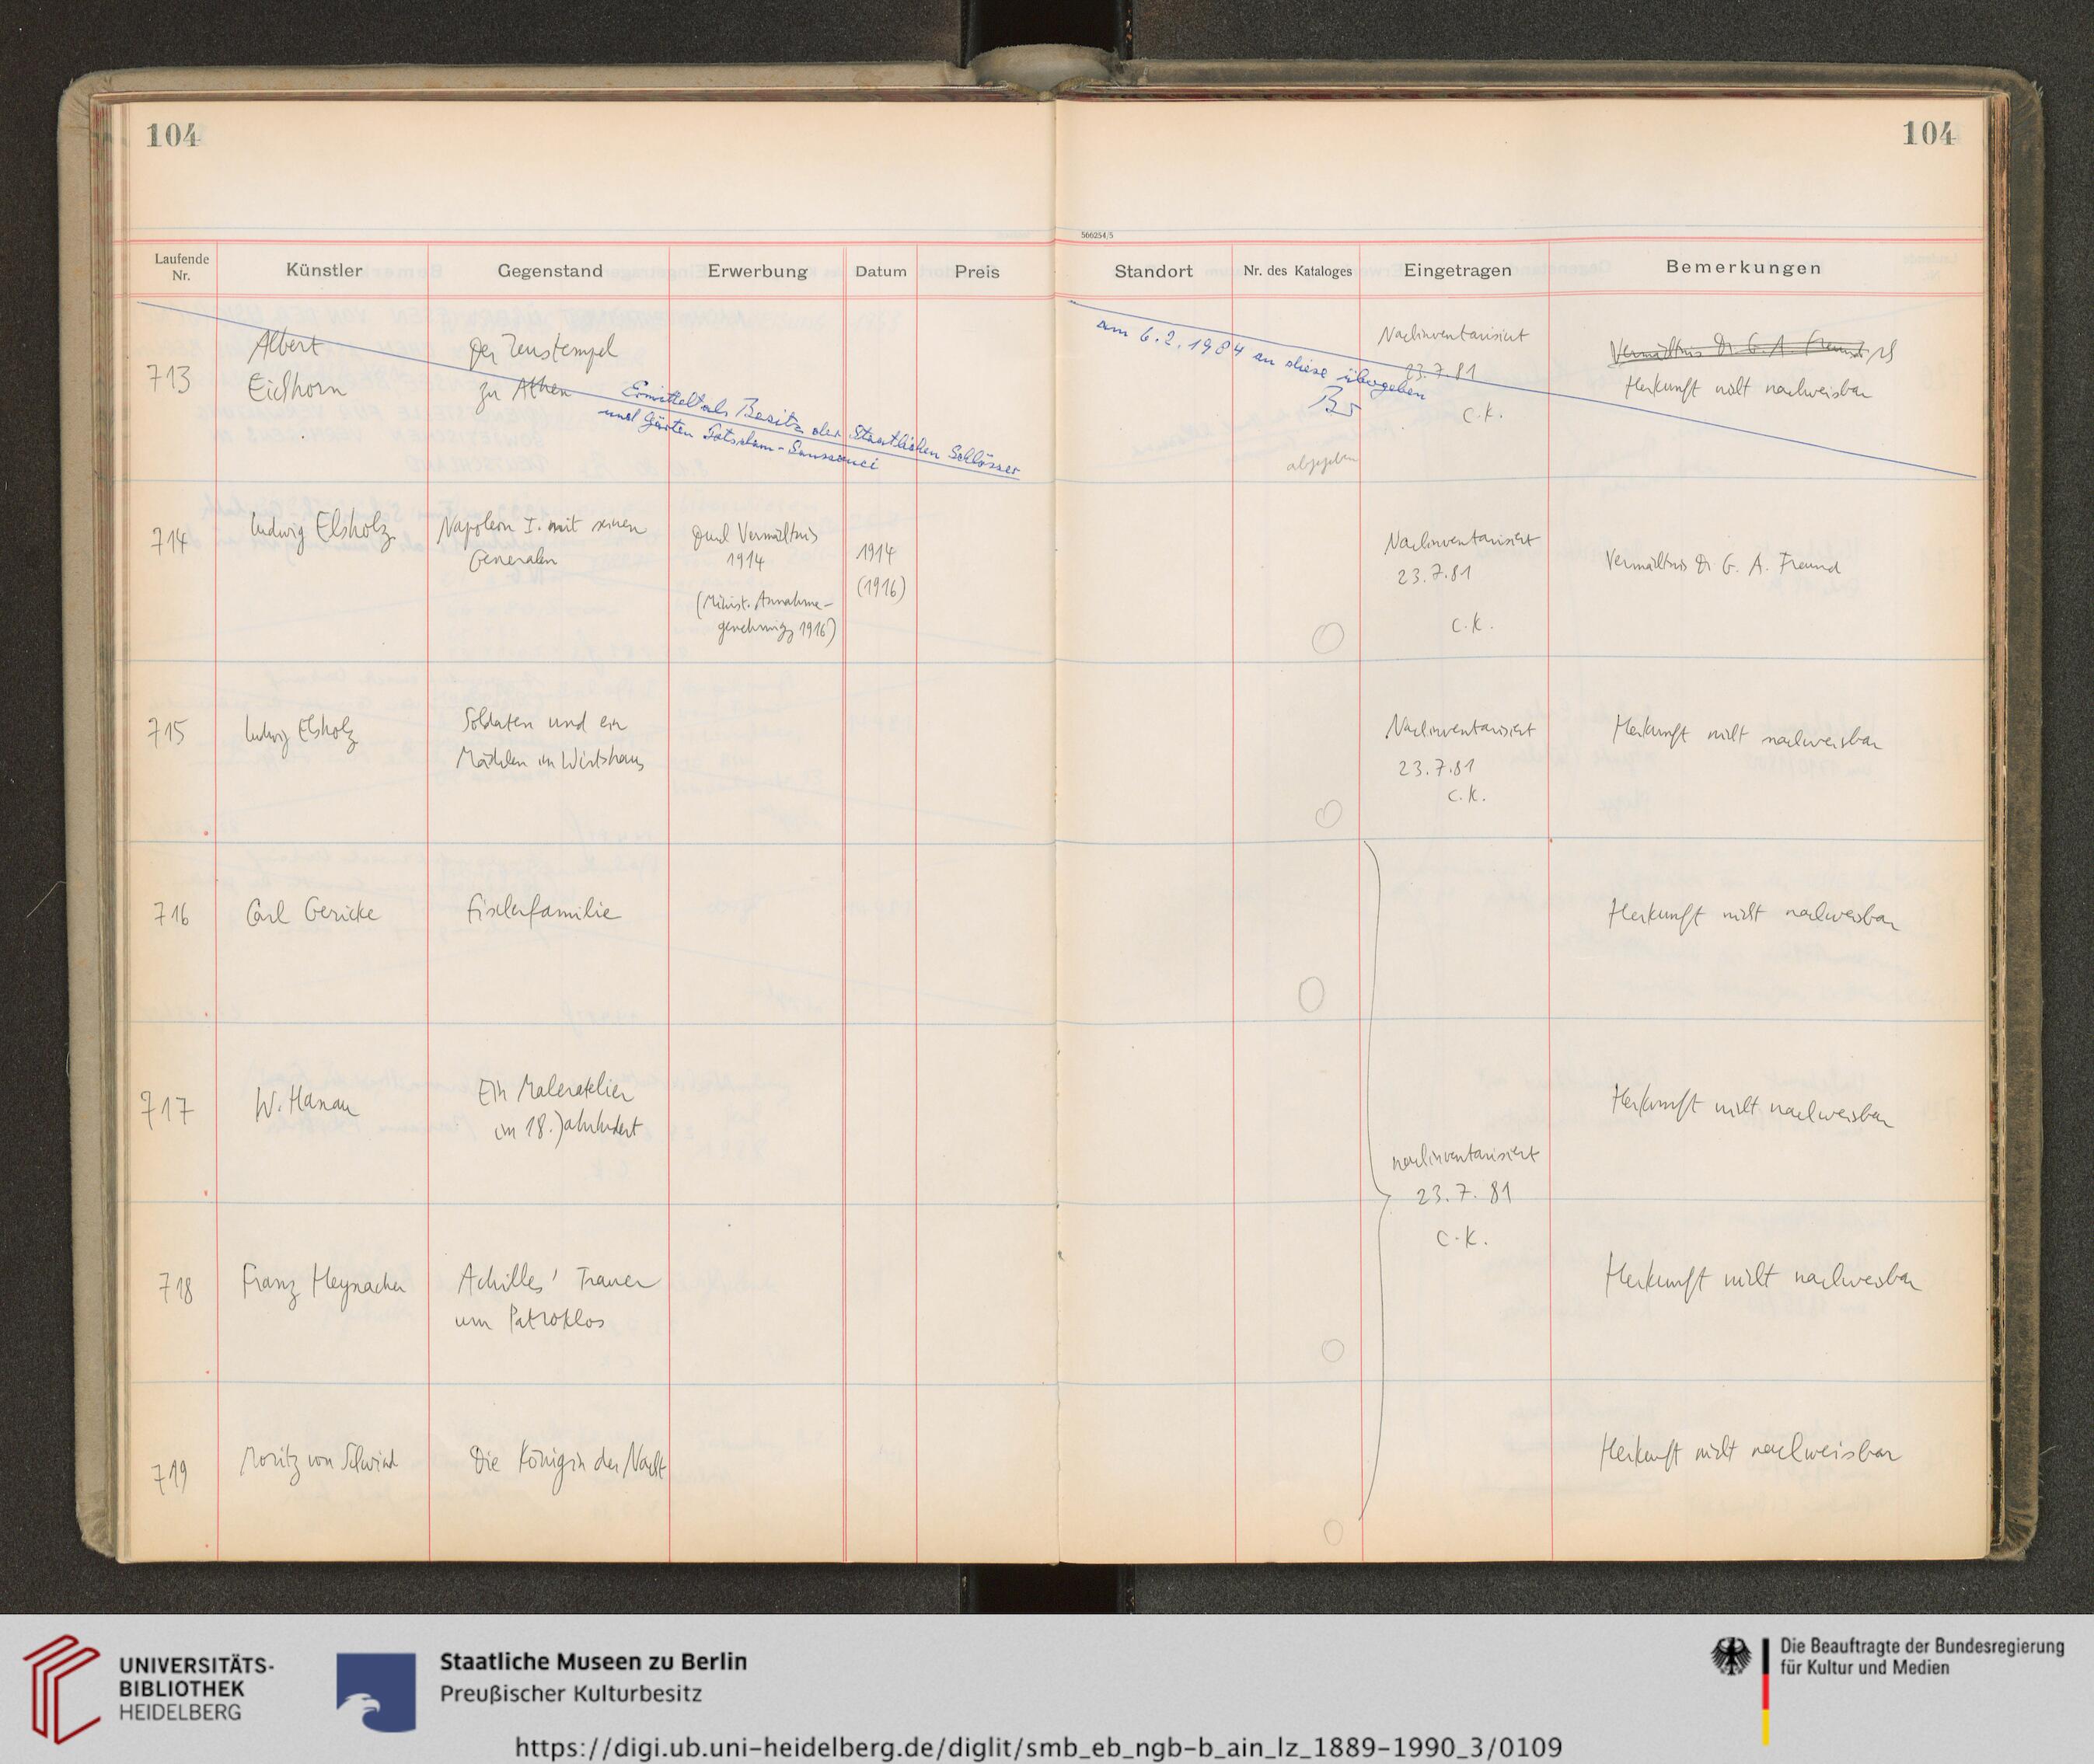 104
104
566254/5
Laufende Nr.
Künstler
Gegenstand
Erwerbung
Datum
Preis
Standort
Nr. des Kataloges
Eingetragen
Bemerkungen
713
Albert
Eichhorn
Der Zeustempel
zu Athen
Ermittelt als Besitz der Staatlichen Schlösser
und Gärten Potsdam-Sanssouci
am 6.2.1984 an diese übergeben
abgegeben
Nachinventarisiert
23.7.81
C.K.
Vermächtnis Dr. G. A. Freund
Herkunft nicht nachweisbar
714
Ludwig Elsholz
Napoleon I. mit seinen
Generalen
Durch Vermächtnis
1914
(Minist. Annahme-
genehmigg 1916)
1914
(1916)
Nachinventarisiert
23.7.81
C.K.
Vermächtnis Dr G. A. Freund
715
Ludwig Elsholz
Soldaten und ein
Mädchen im Wirtshaus
Nachinventarisiert
23.7.81
C.K.
Herkunft nicht nachweisbar
716
Carl Gericke
Fischerfamilie
Herkunft nicht nachweisbar
717
W. Hanau
Ein Maleratelier
im 18. Jahrhundert
nachinventarisiert
23.7.81
C.K.
Herkunft nicht nachweisbar
718
Franz Heynacher
Achilles' Trauer
um Patroklos
Herkunft nicht nachweisbar
719
Moritz von Schwind
Die Königin der Nacht
Herkunft nicht nachweisbar
UNIVERSITÄTS-
BIBLIOTHEK
HEIDELBERG
Staatliche Museen zu Berlin
Preußischer Kulturbesitz
Die Beauftragte der Bundesregierung
für Kultur und Medien
https://digi.ub.uni-heidelberg.de/diglit/smb_eb_ngb-b_ain_lz_1889-1990_3/0109